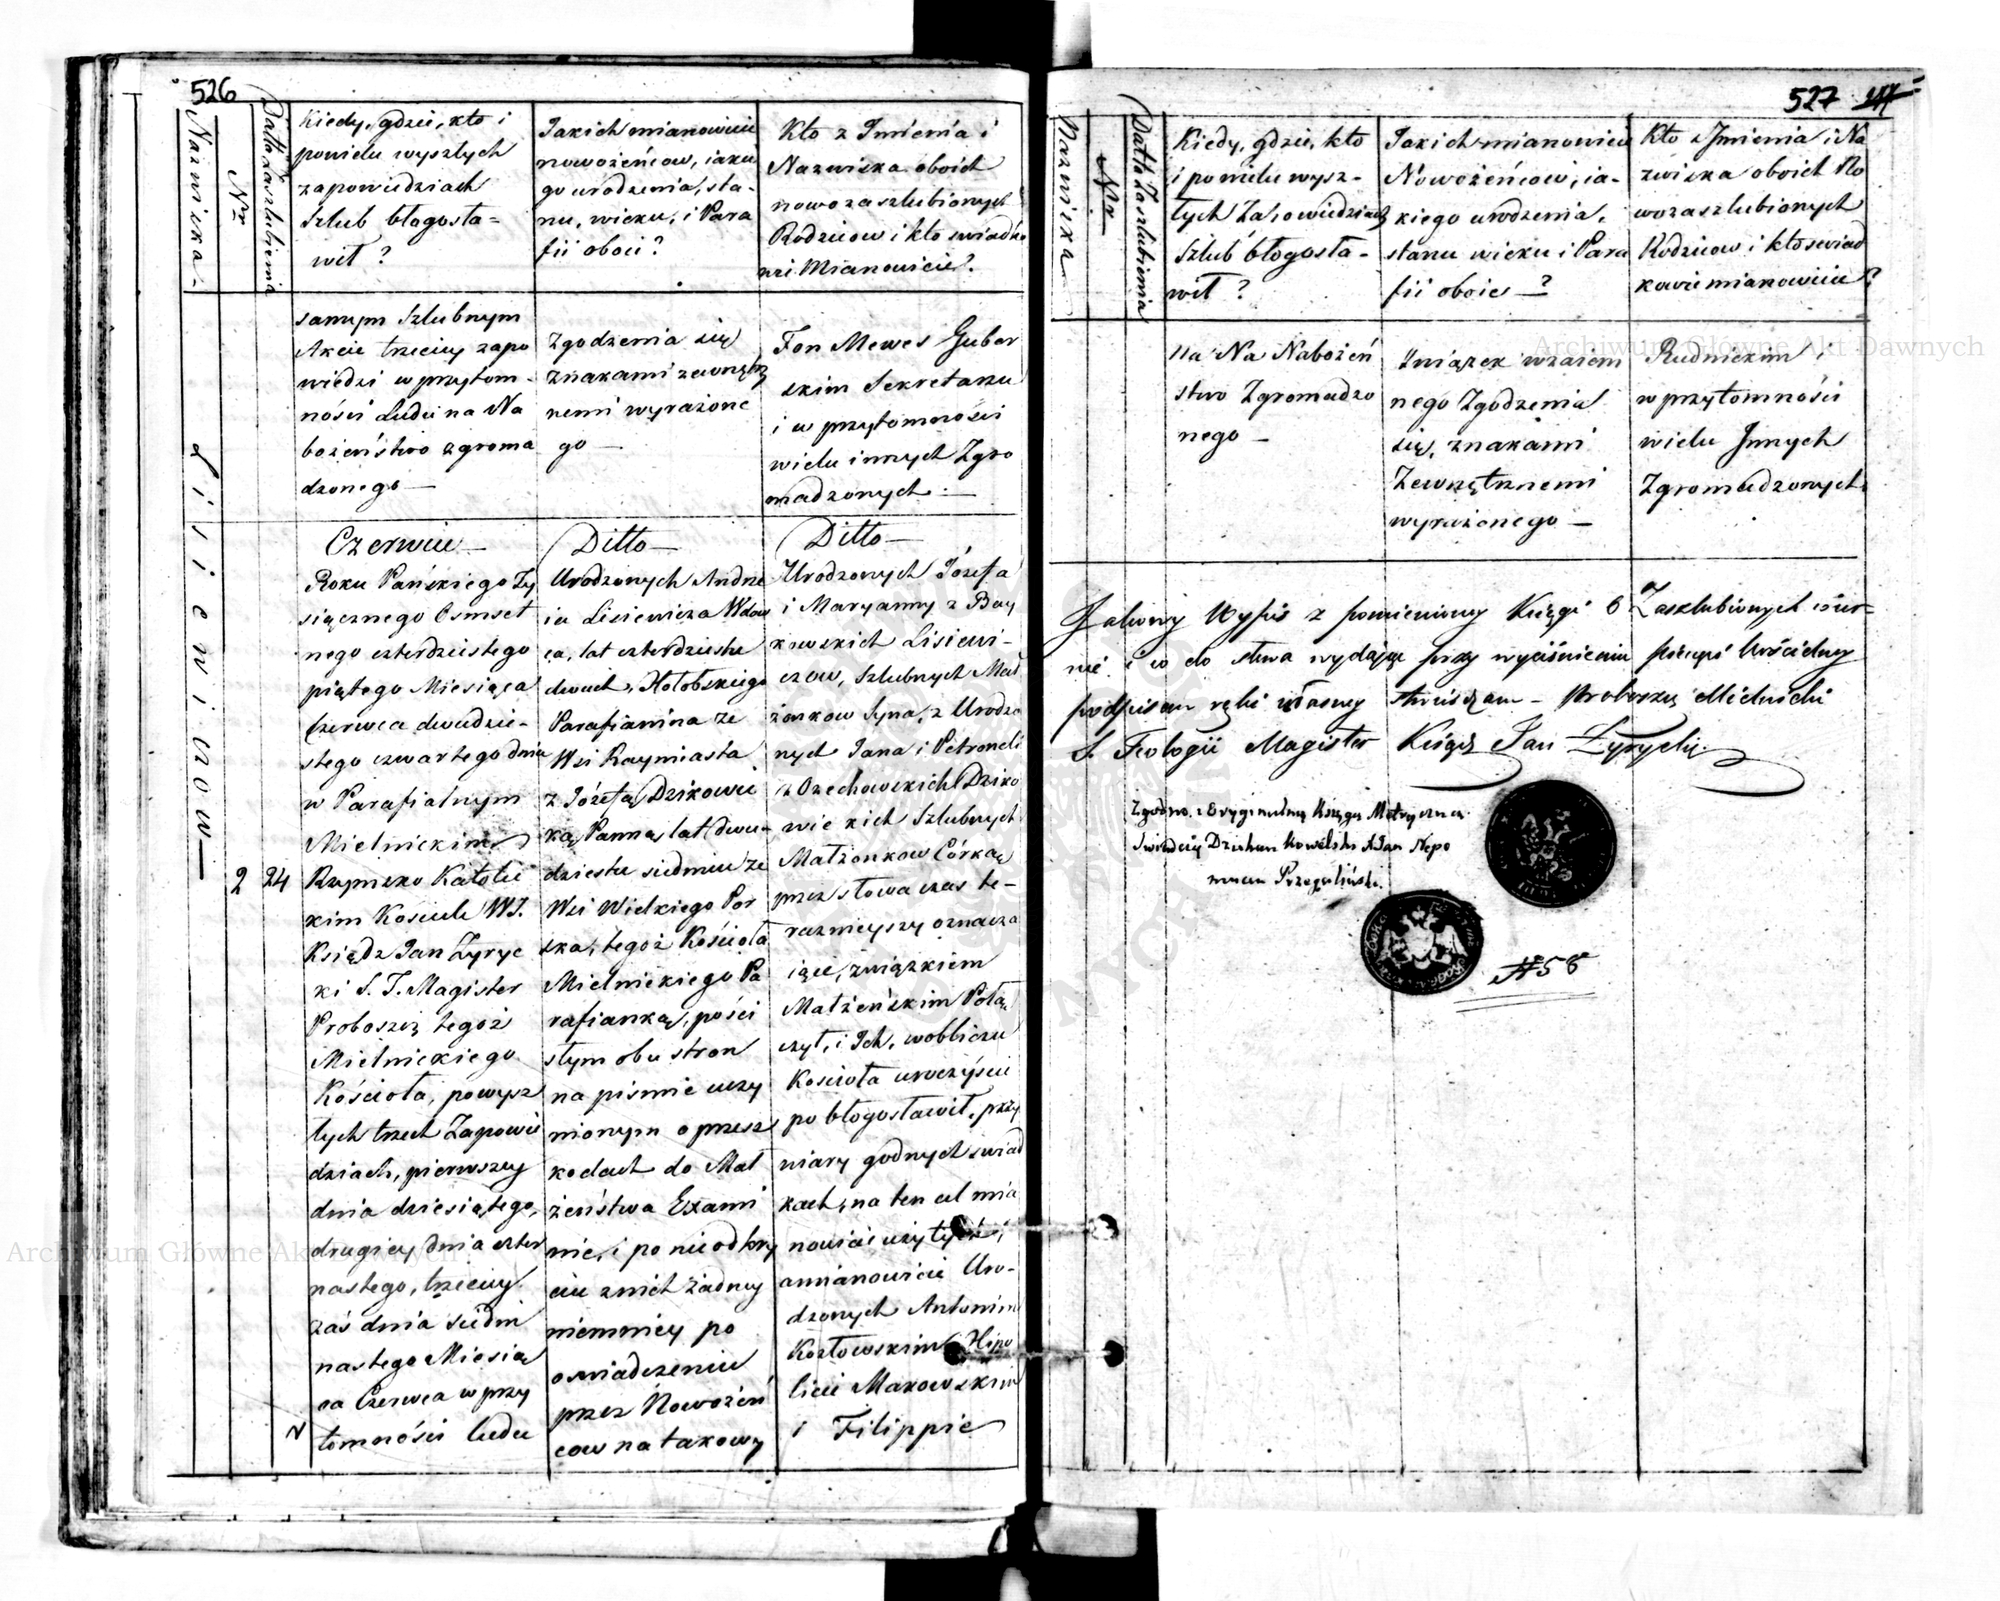 526
Nazwiska
Nr
Datta Zaszlubienia
Kiedy, gdzie, kto i
powielu wyszłych
zapowiedziach
Szlub błogosła-
wił ?
Jakich mianowicie
nowożeńcow, iakie
go urodzenia, sta-
nu, wieku, i Para
fii oboie ?
Kto z Jmienia i
Nazwiska oboich
nowozaszlubionych
Rodzicow i kto swiadko
wie Mianowicie ?
samym Szlubnym
Akcie trzeciey zapo
wiedzi w przytom-
ności Ludu na Na
bożeństwo zgroma
dzonego —
Zgodzenia się
znakami zewnętrz
nemi wyrażone
go —
Fon Mewes Guber
skim Sekretarzu
i w przytomności
wielu innych Zgro
madzonych —
Lisiewiczow —
2
24
Czerwiec —
Roku Pańskiego Ty
siącznego Osmset
nego czterdziestego
piątego Miesiąca
Czerwca dwudzie-
stego czwartego dnia
w Parafialnym
Mielnickim
Rzymsko Katolic
kim Kosciele WJ.
Ksiądz Jan Zyryc
ki S. T. Magister
Proboszcz tegoż
Mielnickiego
Kościoła, powysz
łych trzech Zapowie
dziach, pierwszey
dnia dziesiątego,
drugiey dnia czter
nastego, trzeciey
zaś dnia siedm
nastego Miesią
ca Czerwca w przy
tomności ludu
Ditto —
Urodzonych Andrze
ia Lisiewicza Wdow
ca, lat czterdziestu
dwoch, Hołobskiego
Parafianina ze
Wsi Raymiasta
z Józefą Dzikowic
ką, Panną lat dwu-
dziestu siedmiu ze
Wsi Wielkiego Por
ska, tegoż Kościoła
Mielnickiego Pa
rafianką, pości
słym obu stron
na pismie uczy
nionym o przesz
kodach do Mał
żeństwa Exami
nie, i po nieodkry
ciu znich żadney
niemniey po
oswiadczeniu
przez Nowożeń
cow na takowy
Ditto —
Urodzonych Józefa
i Maryanny z Bay
kowskich Lisiewi-
czow, Szlubnych Mał
żonkow Syna, z Urodzo
nych Jana i Petroneli
z Orzechowskich Dziko
wickich Szlubnych
Małżonkow Córką
przez słowa czas te-
raznieyszy oznacza
iące, związkiem
Małżeńskim Połą
czył, i Ich, wobliczu
Kościoła uroczyście
pobłogosławił, przy
wiary godnych swiad
kach, na ten cel mia
nowicie użytych,
amianowicie Uro-
dzonych Antonim
Kozłowskim Hipo
licie Makowskim
i Filippie
527
Nazwiska
Nr
Datta Zaszlubienia
Kiedy, gdzie, kto
i powielu wysz-
łych Zapowiedziach
Szlub błogosła-
wił ?
Jakich mianowicie
Nowożeńcow, ia-
kiego urodzenia,
stanu wieku i Para
fii oboie — ?
Kto z Jmienia i Na
zwiska oboich No
wozaszlubionych
Rodzicow i kto swiad
kowie mianowicie ?
na Na Nabożeń
stwo Zgromadzo
nego —
Związek wzaiem
nego Zgodzenia
się, znakami
Zewnętrznemi
wyrażonego —
Rudnickim i
w przytomności
wielu Jnnych
Zgromadzonych.
Jakowy Wypis z pomienioney Księgi o Zaszlubionych wier-
nie i co do słowa wydając przy wyciśnieniu pieczęci Kościelney
podpisem ręki własney stwierdzam — Proboszcz Mielnicki
S. Teologii Magister Ksiądz Jan Zyrycki
Zgodno z Oryginalną Księgą Metryczną
Swiadczę Dziekan Kowelski Xiądz Nepo
mucen Przegaliński.
N 58
Archiwum Główne Akt Dawnych
Archiwum Główne Akt Dawnych